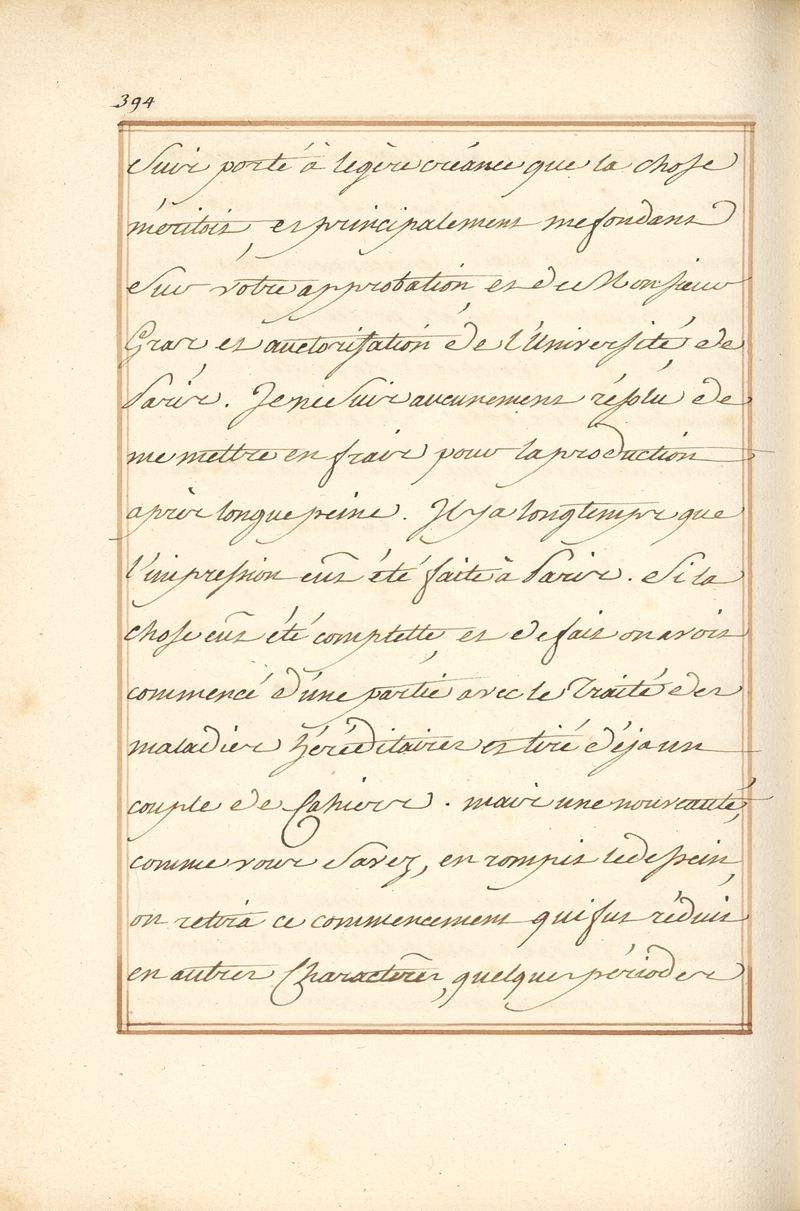 394
suis porté à legère créance que la chose
méritoit, et principalement me fondant
sur vôtre approbation, et de Monsieur
Gras et auctorisation de l'Université de
Paris. Je ne suis aucunement résolu de
me mettre en frais pour la production
après longue peine. Il y a longtemps que
l'impression eut été faite à Paris. Si la
chose eut été complette, et de fait on avoit
commencé d'une partie avec le Traité des
maladies héréditaires et tiré déja un
couple de Cahiers. mais une nouveauté,
comme vous savez, en rompit le dessein,
on retira ce commencement qui fut réduit
en autres Characteres, quelques périodes